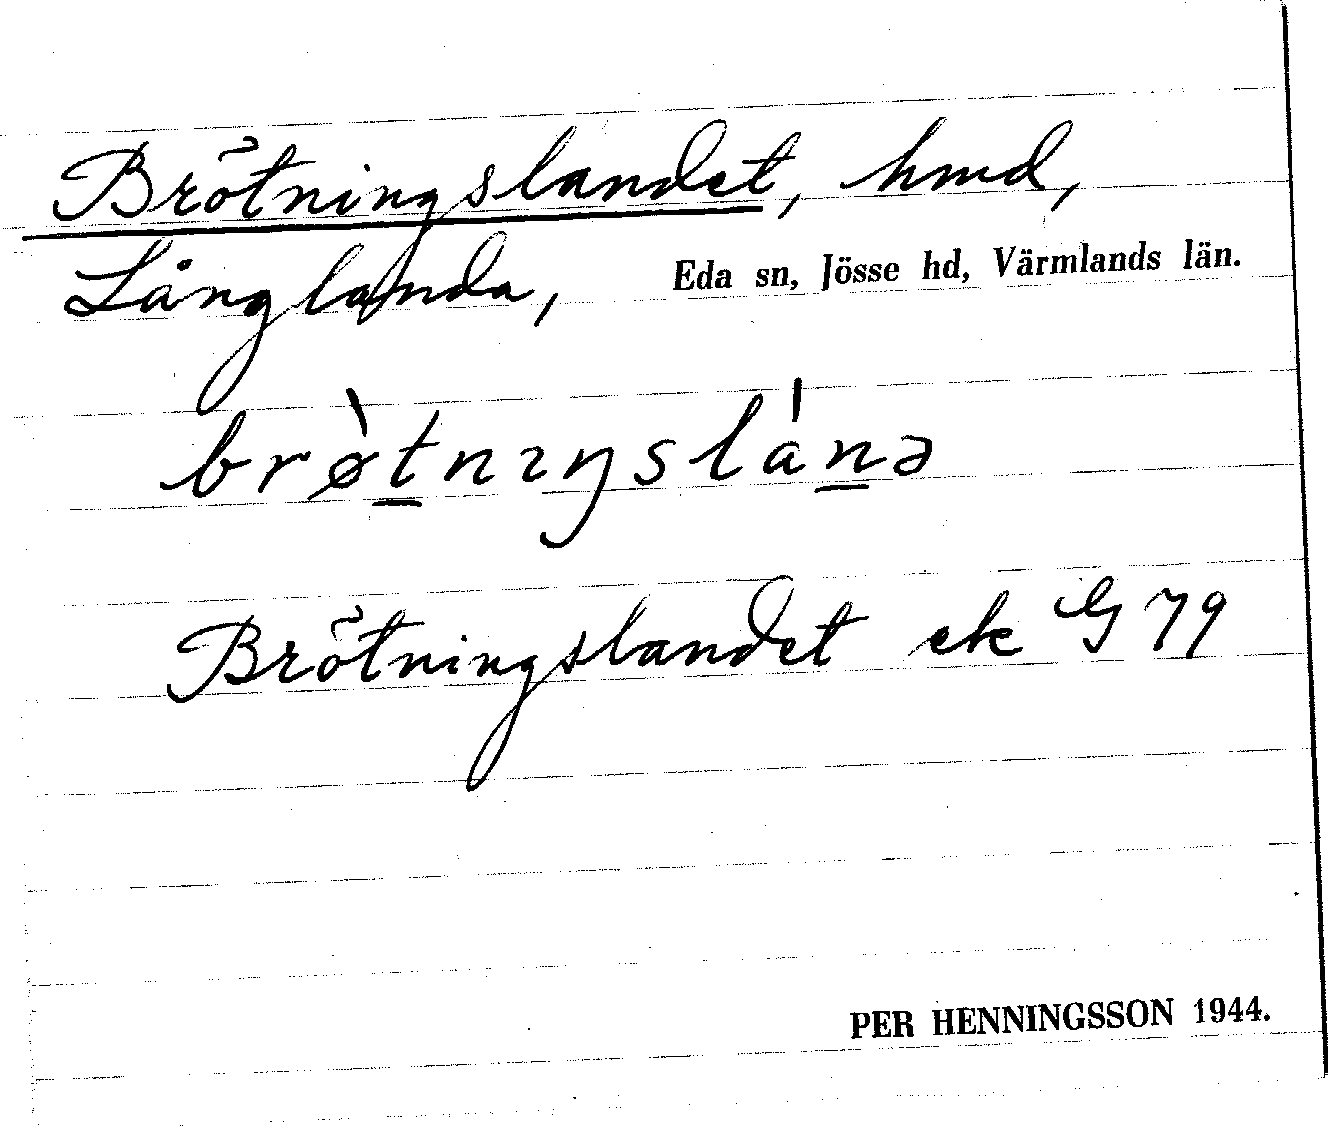 Brötningslandet, hmd,
Långlanda, Eda sn, Jösse hd, Värmlands län.
brø̀t̲nɪŋslán̲ə
Brötningslandet ek G 79
PER HENNINGSSON 1944.